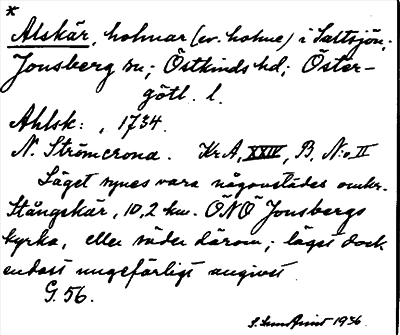 *
Alskär, holmar (ev. holme) i Saltsjön;
Jonsberg sn; Östkinds hd; Öster-
götl. l.
Ahlsk: , 1734.
N. Strömcrona. Kr A, XXIV, B, N:o II
Läget synes vara någonstädes omkr.
Stångskär, 10,2 km. ÖNÖ Jonsbergs
kyrka, eller söder därom; läget dock
endast ungefärligt angivet
G. 56.
1936